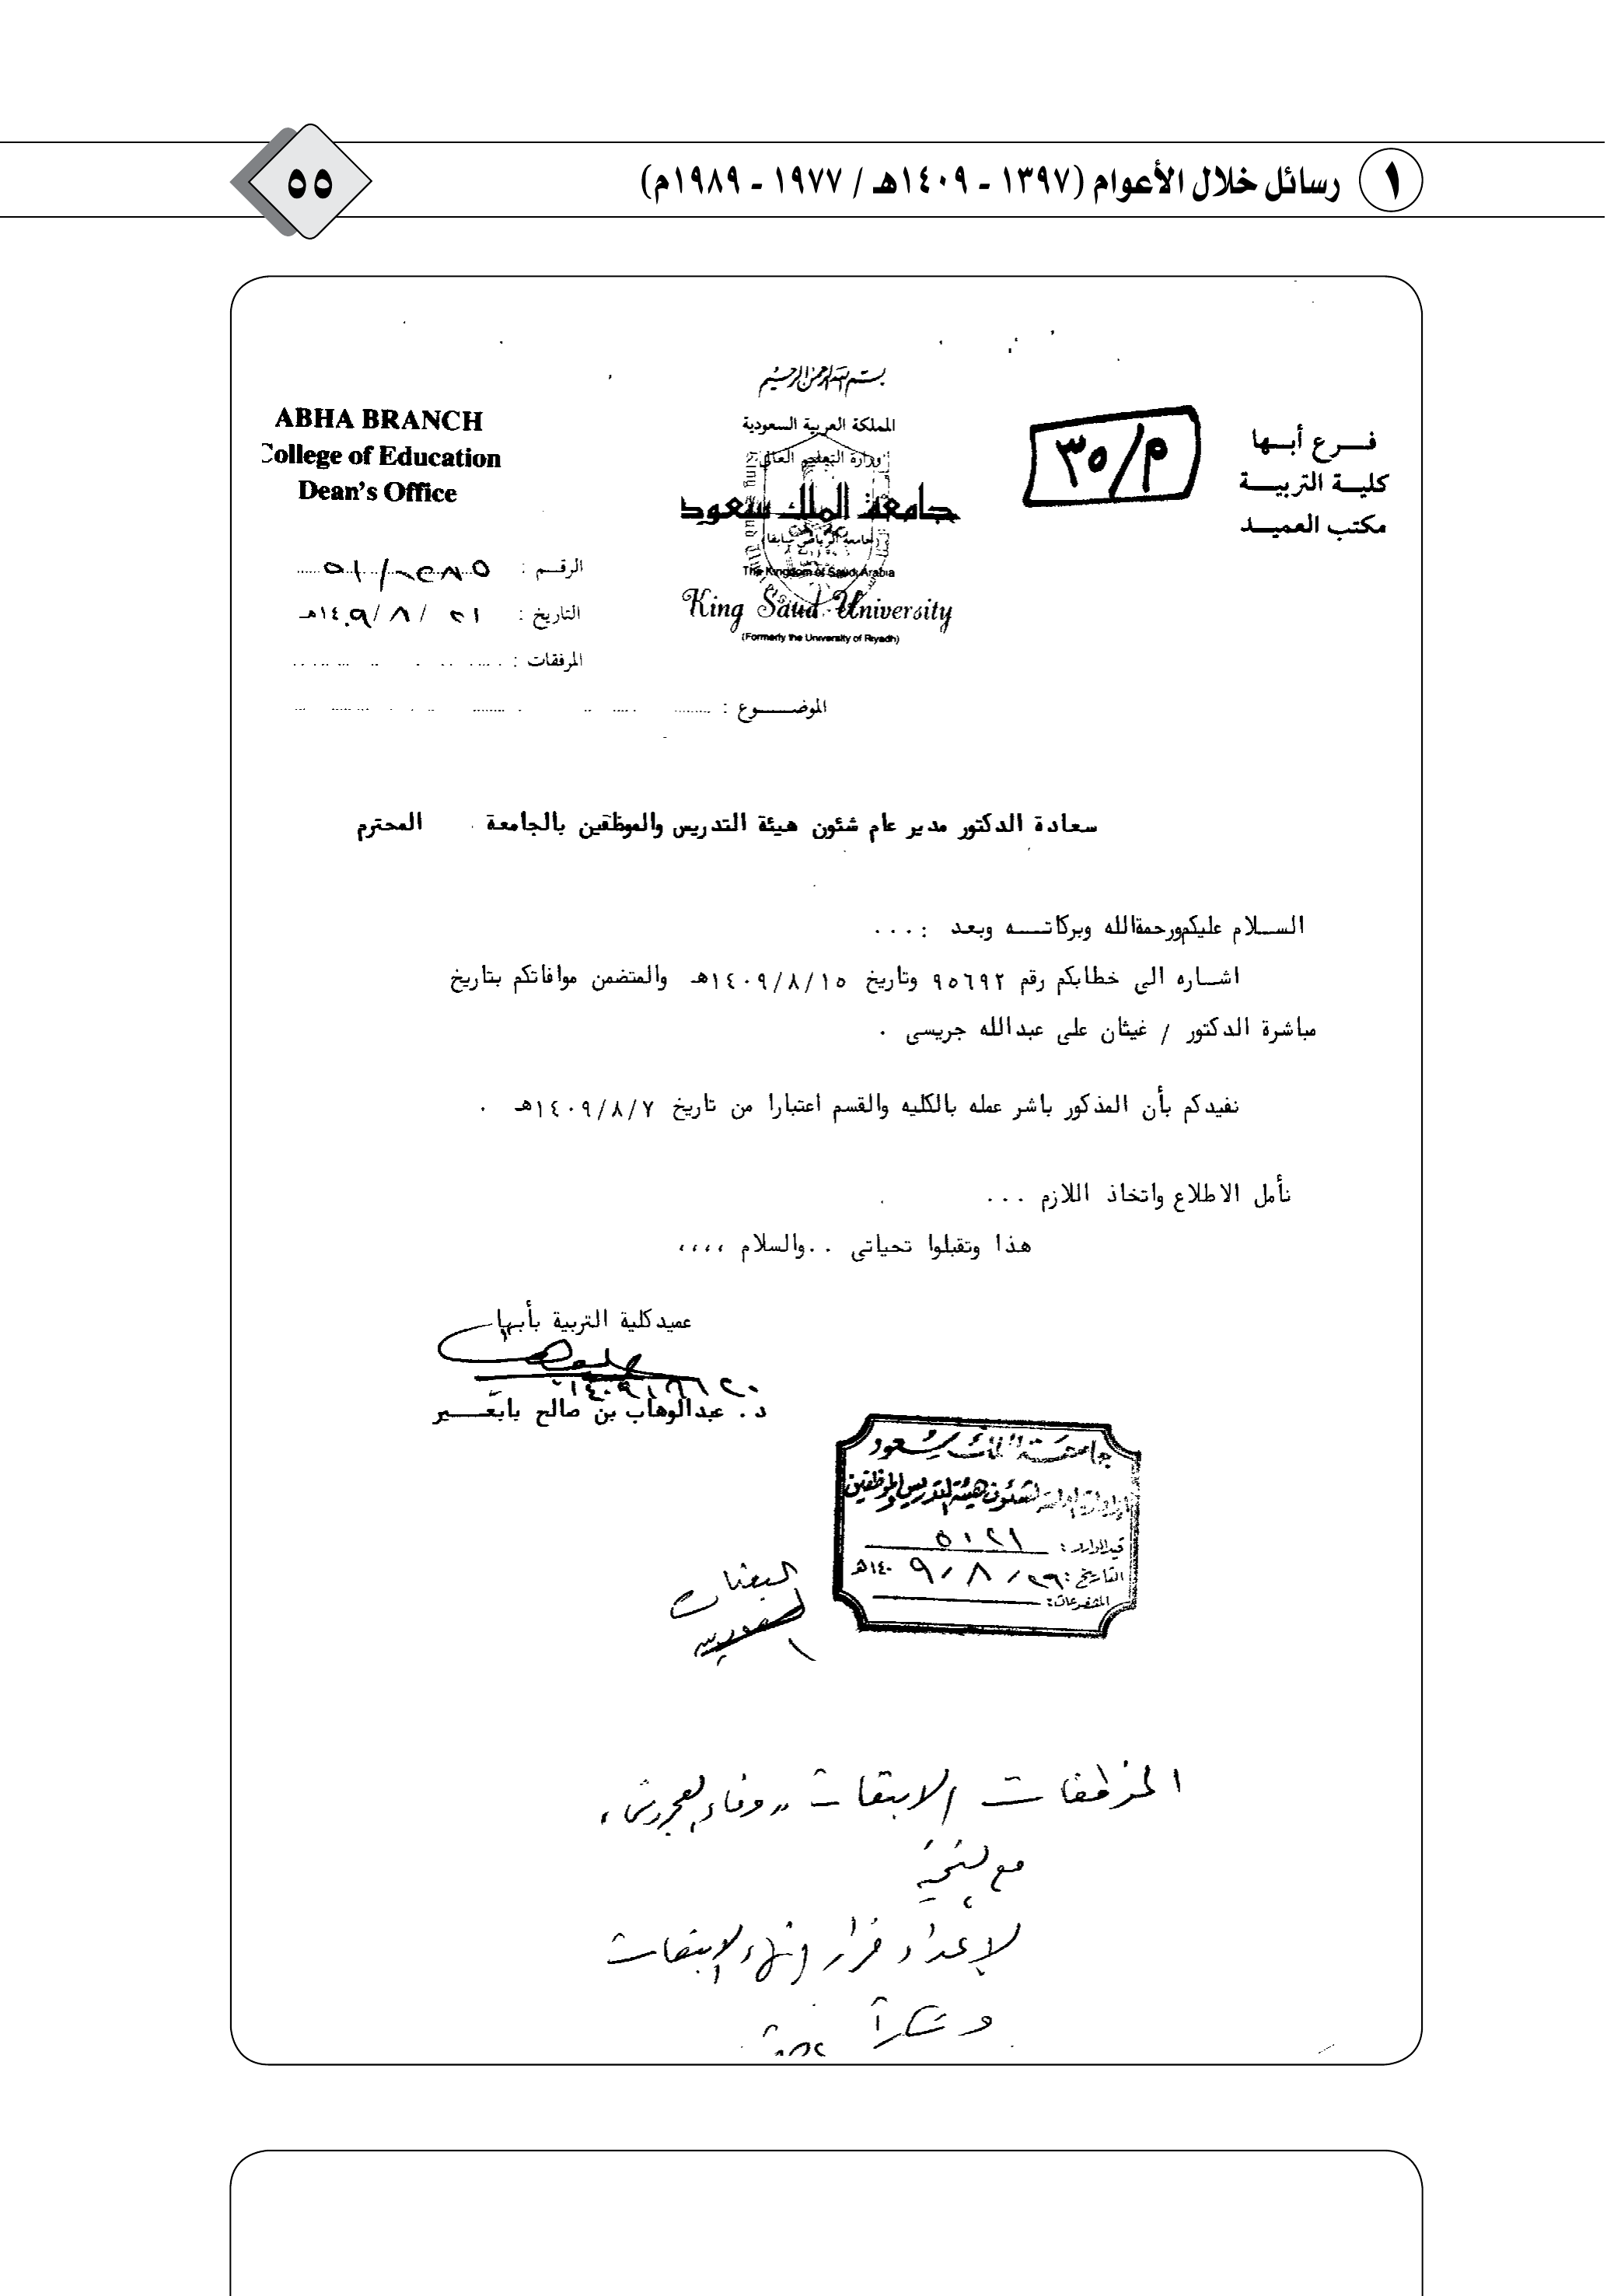 ١ رسائل خلال الأعوام (١٣٩٧ - ١٤٠٩هـ / ١٩٧٧ - ١٩٨٩م) ٥٥
بسم الله الرحمن الرحيم
المملكة العربية السعودية
وزارة التعليم العالي
جامعة الملك سعود
(جامعة الرياض سابقا)
The Kingdom of Saudi Arabia
King Saud University
(Formerly the University of Riyadh)
فرع أبها
كلية التربية
مكتب العميد
م/٣٥
ABHA BRANCH
College of Education
Dean's Office
الرقم :
التاريخ : ٢١ / ٨ / ١٤٠٩هـ
المرفقات :
الموضوع :
سعادة الدكتور مدير عام شئون هيئة التدريس والموظفين بالجامعة المحترم
السلام عليكم ورحمة الله وبركاته وبعد : ...
اشاره الى خطابكم رقم ٩٥٦٩٢ وتاريخ ١٤٠٩/٨/١٥هـ والمتضمن موافاتكم بتاريخ
مباشرة الدكتور / غيثان على عبدالله جريسى .
نفيدكم بأن المذكور باشر عمله بالكليه والقسم اعتبارا من تاريخ ١٤٠٩/٨/٧هـ .
نأمل الاطلاع واتخاذ اللازم ...
هذا وتقبلوا تحياتى ..والسلام ،،،،
عميد كلية التربية بأبها
١٤٠٩/٨/٢٠
د . عبدالوهاب بن صالح بابعير
جامعة الملك سعود
الإدارة العامة لشئون هيئة التدريس والموظفين
قيد الوارد : ٥١٢١
التاريخ : ٢٦ / ٨ / ١٤٠٩هـ
المشفوعات :
البعثات
الموظفات الابتعاث
مع التحية
لإعداد قرار إنهاء الابتعاث
وشكراً